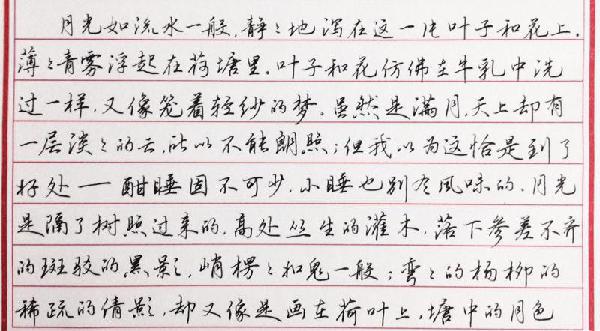 月光如流水一般，静々地泻在这一片叶子和花上。
薄々青雾浮起在荷塘里。叶子和花仿佛在牛乳中洗
过一样，又像笼着轻纱的梦。虽然是满月，天上却有
一层淡々的云，所以不能朗照；但我以为这恰是到了
好处——酣睡固不可少，小睡也别有风味的。月光
是隔了树照过来的，高处丛生的灌木，落下参差不齐
的斑驳的黑影，峭楞々和鬼一般；弯々的杨柳的
稀疏的倩影，却又像是画在荷叶上，塘中的月色